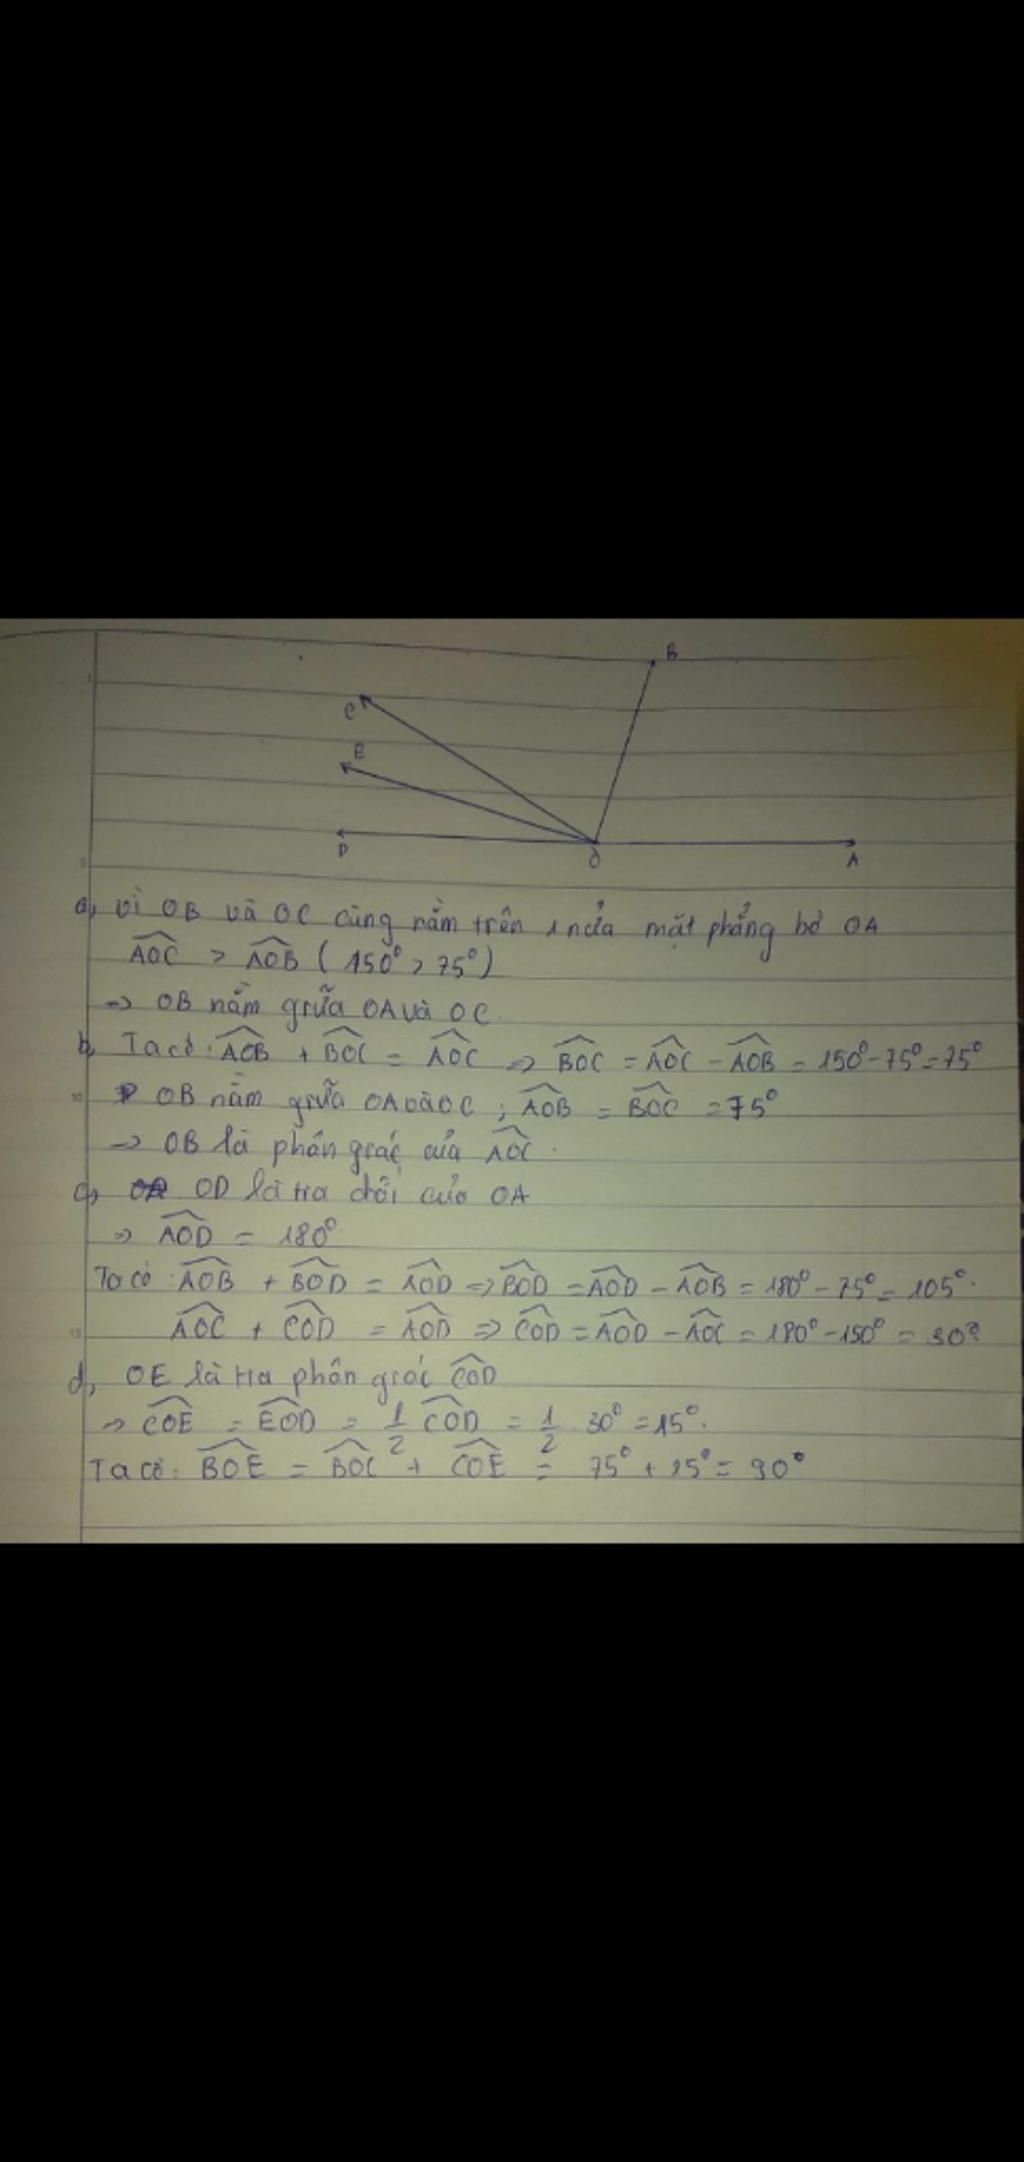 B
C
E
D
O
A
a, Vì OB và OC cùng nằm trên 1 nửa mặt phẳng bờ OA
AOC > AOB ( 150° > 75° )
=> OB nằm giữa OA và OC.
b, Ta có : AOB + BOC = AOC => BOC = AOC - AOB = 150° - 75° = 75°
OB nằm giữa OA và OC ; AOB = BOC = 75°
=> OB là phân giác của AOC.
c, OD là tia đối của OA
=> AOD = 180°
Ta có : AOB + BOD = AOD => BOD = AOD - AOB = 180° - 75° = 105°.
AOC + COD = AOD => COD = AOD - AOC = 180° - 150° = 30°
d, OE là tia phân giác COD
=> COE = EOD = 1/2 COD = 1/2 . 30° = 15°.
Ta có : BOE = BOC + COE = 75° + 15° = 90°